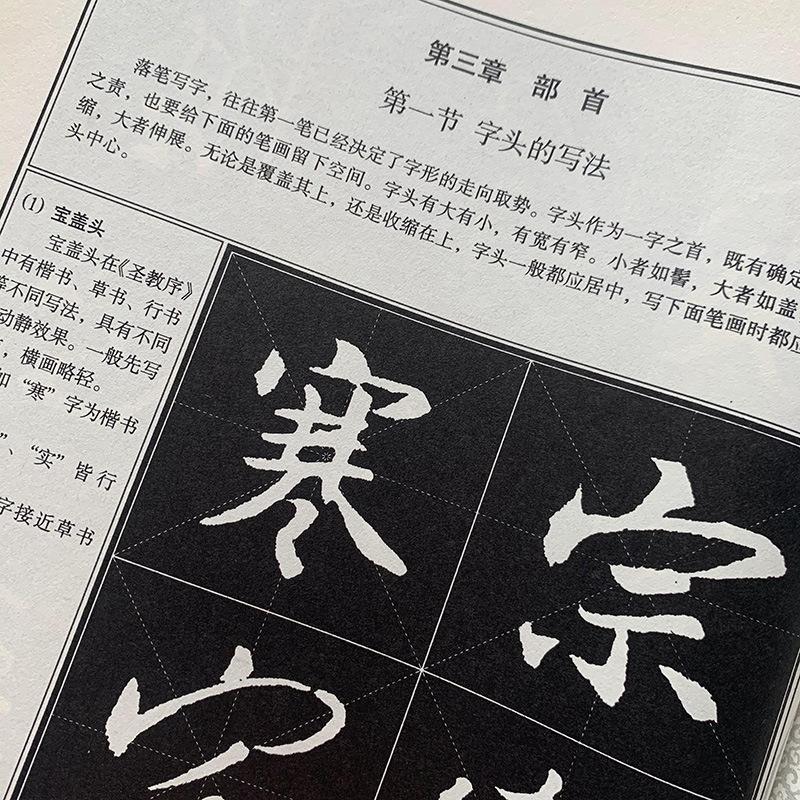 第三章 部 首
第一节 字头的写法
落笔写字，往往第一笔已经决定了字形的走向取势。字头作为一字之首，既有确定
之责，也要给下面的笔画留下空间。字头有大有小，有宽有窄。小者如髻，大者如盖
缩，大者伸展。无论是覆盖其上，还是收缩在上，字头一般都应居中，写下面笔画时都应
头中心。
(1) 宝盖头
宝盖头在《圣教序》
中有楷书、草书、行书
等不同写法，具有不同
动静效果。一般先写
，横画略轻。
如“寒”字为楷书
”、“实”皆行
字接近草书
寒
宗